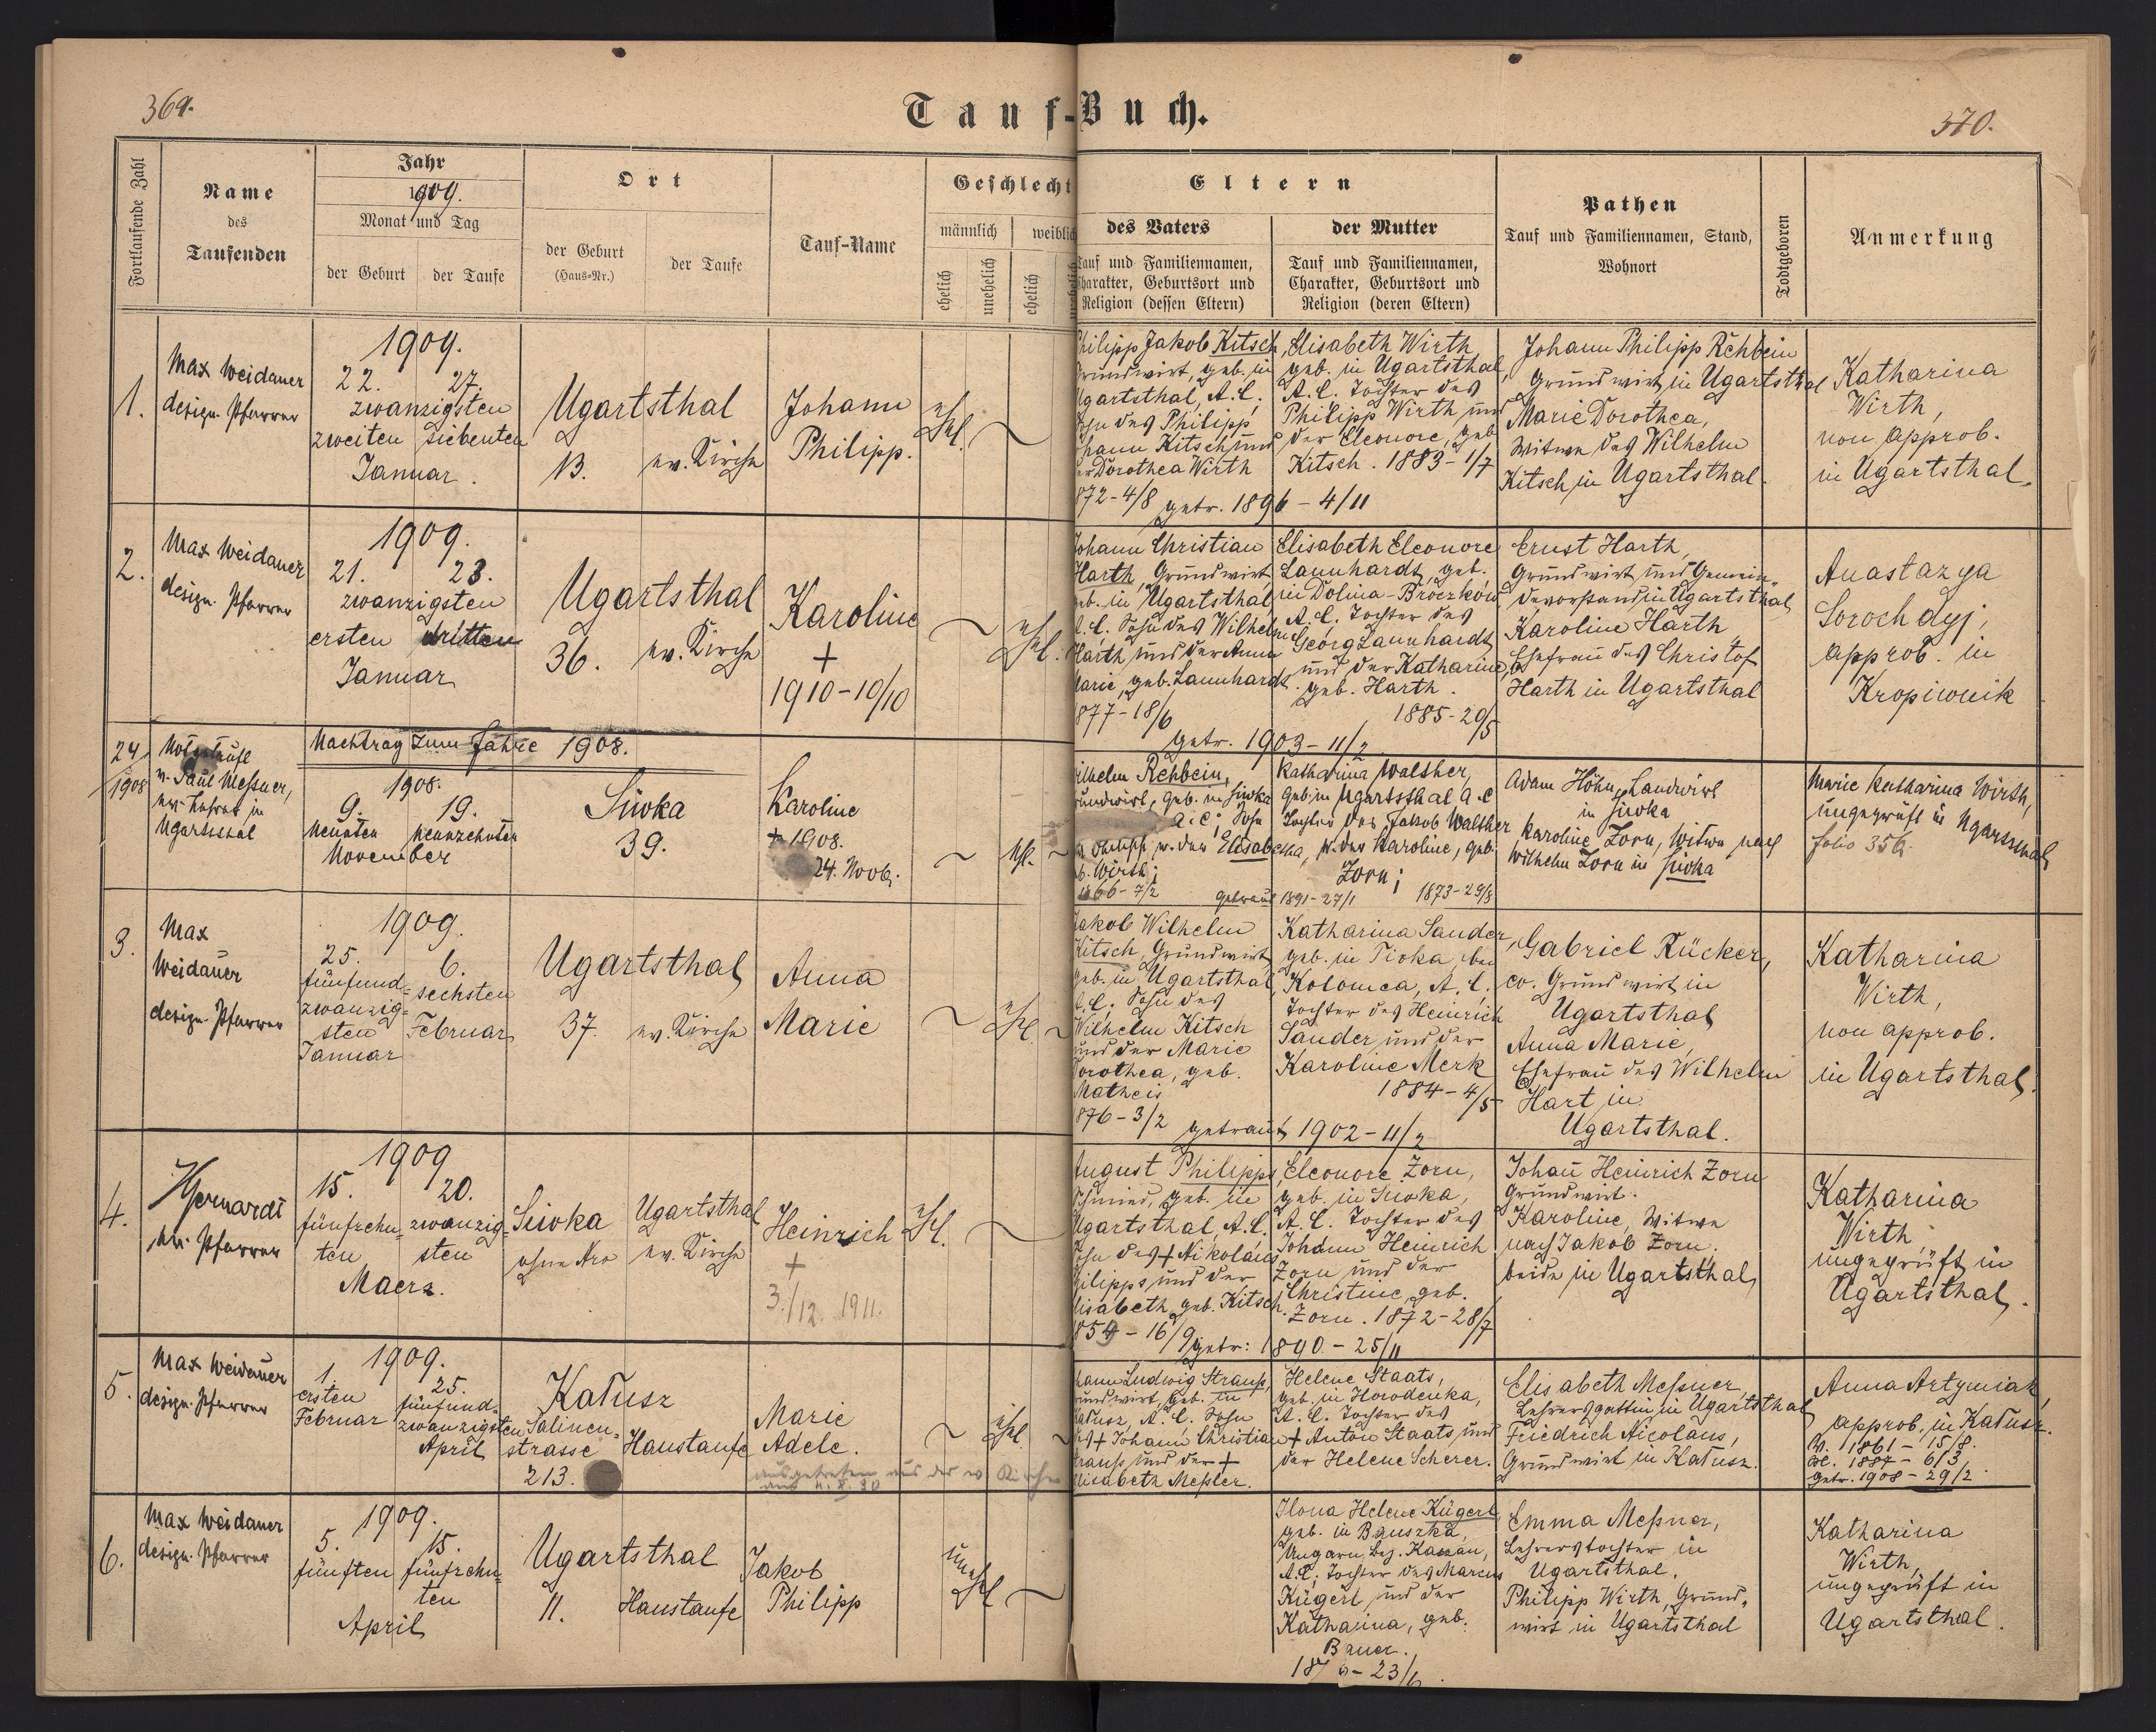 369.
Tauf-Buch.
370.
Fortlaufende Zahl
Name
des
Taufenden
Jahr
1909.
Monat und Tag
der Geburt
der Taufe
Ort
der Geburt
(Haus-Nr.)
der Taufe
Tauf-Name
Geschlecht
männlich
weiblich
ehelich
unehelich
ehelich
Eltern
des Vaters
Tauf und Familiennamen,
Charakter, Geburtsort und
Religion (dessen Eltern)
der Mutter
Tauf und Familiennamen,
Charakter, Geburtsort und
Religion (deren Eltern)
Pathen
Tauf und Familiennamen, Stand,
Wohnort
Todtgeboren
Anmerkung
1.
Max Weidauer
design. Pfarrer
1909.
22.
zwanzigsten
zweiten
27.
siebenten
Januar.
Ugartsthal
13.
ev. Kirche
Johann
Philipp.
ehl.
Philipp Jakob Kitsch,
Grundwirt, geb. in
Ugartsthal, A.C.
Sohn des Philipp
Johann Kitsch und
der Dorothea Wirth
1872-4/8
getr. 1896-4/11
Elisabeth Wirth
geb. in Ugartsthal,
A.C. Tochter des
Philipp Wirth und
der Eleonore, geb.
Kitsch. 1883-1/7
Johann Philipp Rehbein
Grundwirt, in Ugartsthal
Marie Dorothea,
Witwe des Wilhelm
Kitsch, in Ugartsthal.
Katharina
Wirth,
non approb.
in Ugartsthal.
2.
Max Weidauer
design. Pfarrer
1909.
21.
zwanzigsten
ersten
23.
dritten
Januar
Ugartsthal
36.
ev. Kirche
Karoline
+
1910-10/10
ehl.
Johann Christian
Harth, Grundwirt
geb. in Ugartsthal
A.C. Sohn des Wilhelm
Harth und der Anna
Marie, geb. Launhardt.
1877-18/6
getr. 1903-11/2
Elisabeth Eleonore
Launhardt, geb.
in Dolina-Broczków
A.C. Tochter des
Georg Launhardt
und der Katharina,
geb. Harth.
1885-20/5
Ernst Harth,
Grundwirt und Gemein-
devorstand in Ugartsthal
Karoline Harth
Ehefrau des Christof
Harth in Ugartsthal
Anastazya
Sorochdyj,
approb. in
Kropiwnik
24/1908
Notgetauft
v. Paul Meßner,
ev. Lehrer in
Ugartsthal
Nachtrag zum Jahre 1908.
1908.
9.
Neunten
19.
Neunzehnten
November
Siwka
39.
Karoline
+ 1908.
24. Novb.
ehl.
Wilhelm Rehbein,
Grundwirt, geb. in Siwka
A.C; Sohn
des Philipp u. der Elisabetha,
geb. Wirth;
1866-7/2
getraut 1891-27/1
Katharina Walther,
geb. in Ugartsthal A.C
Tochter des Jakob Walther
u. der Karoline, geb.
Zorn;
1873-29/8
Adam Höhn, Landwirt
in Siwka
Karoline Zorn, Witwe nach
Wilhelm Zorn in Siwka
Marie Katharina Wirth,
ungeprüft in Ugartsthal
folio 356.
3.
Max
Weidauer
design. Pfarrer
1909.
25.
fünfund-
zwanzig-
sten
Januar
6.
sechsten
Februar
Ugartsthal
37.
ev. Kirche
Anna
Marie
ehl.
Jakob Wilhelm
Kitsch, Grundwirt
geb. in Ugartsthal,
A.C. Sohn des
Wilhelm Kitsch
und der Marie
Dorothea, geb.
Matheis
1876-3/2
getraut 1902-11/2
Katharina Sander,
geb. in Tioka, bei
Kolomea, A.C.
Tochter des Heinrich
Sander und der
Karoline Merk
1884-4/5
Gabriel Rücker,
ev. Grundwirt in
Ugartsthal
Anna Marie,
Ehefrau des Wilhelm
Hart in
Ugartsthal.
Katharina
Wirth,
non approb.
in Ugartsthal.
4.
Pfarrer
1909
15.
fünfzehn-
ten
20.
zwanzig-
sten
Maerz.
Siwka
ohne Nro
Ugartsthal
ev. Kirche
Heinrich
+
3./12. 1911.
ehl.
August Philipps,
Schmied, geb. in
Ugartsthal, A.C.
Sohn des + Nikolaus
Philipps und der
Elisabeth, geb. Kitsch.
1854-16/9
getr: 1890-25/11
Eleonore Zorn,
geb. in Siwka,
A.C. Tochter des
Johann Heinrich
Zorn und der
Christine, geb.
Zorn. 1872-28/7
Johan̄ Heinrich Zorn
Grundwirt.
Karoline, Witwe
nach Jakob Zorn.
beide in Ugartsthal
Katharina
Wirth
ungeprüft in
Ugartsthal.
5.
Max Weidauer
design. Pfarrer
1909.
1.
ersten
Februar
25.
fünfund-
zwanzigsten
April
Kałusz
Salinen-
strasse
213.
Haustaufe
Marie
Adele.
ausgetreten aus der ev Kirche
ehl.
Johann Ludwig Strauß,
Grundwirt, geb. in
Kałusz, A.C. Sohn
des + Johann Christian
Strauß und der +
Elisabeth Meßler.
Helene Staats,
geb. in Horodenka,
A.C. Tochter des
+ Anton Staats, und
der Helene Scherer.
Elisabeth Meßner,
Lehrersgattin in Ugartsthal
Friedrich Nicolaus,
Grundwirt in Kałusz.
Anna Artymiak,
approb. in Kałusz.
1861-15/8.
1884-6/3
getr. 1908-29/2.
6.
Max Weidauer
design. Pfarrer
1909.
5.
fünften
15.
fünfzehn-
ten
April
Ugartsthal
11.
Haustaufe
Jakob
Philipp
unehl
Ilona Helene Kügerl
geb. in Bauszka,
Ungarn, bez. Kaszau,
A.C; Tochter des Marcus
Kügerl und der
Katharina, geb.
Bauer.
Emma Meßner,
Lehrerstochter in
Ugartsthal.
Philipp Wirth, Grund-
wirt in Ugartsthal
Katharina
Wirth,
ungeprüft in
Ugartsthal.